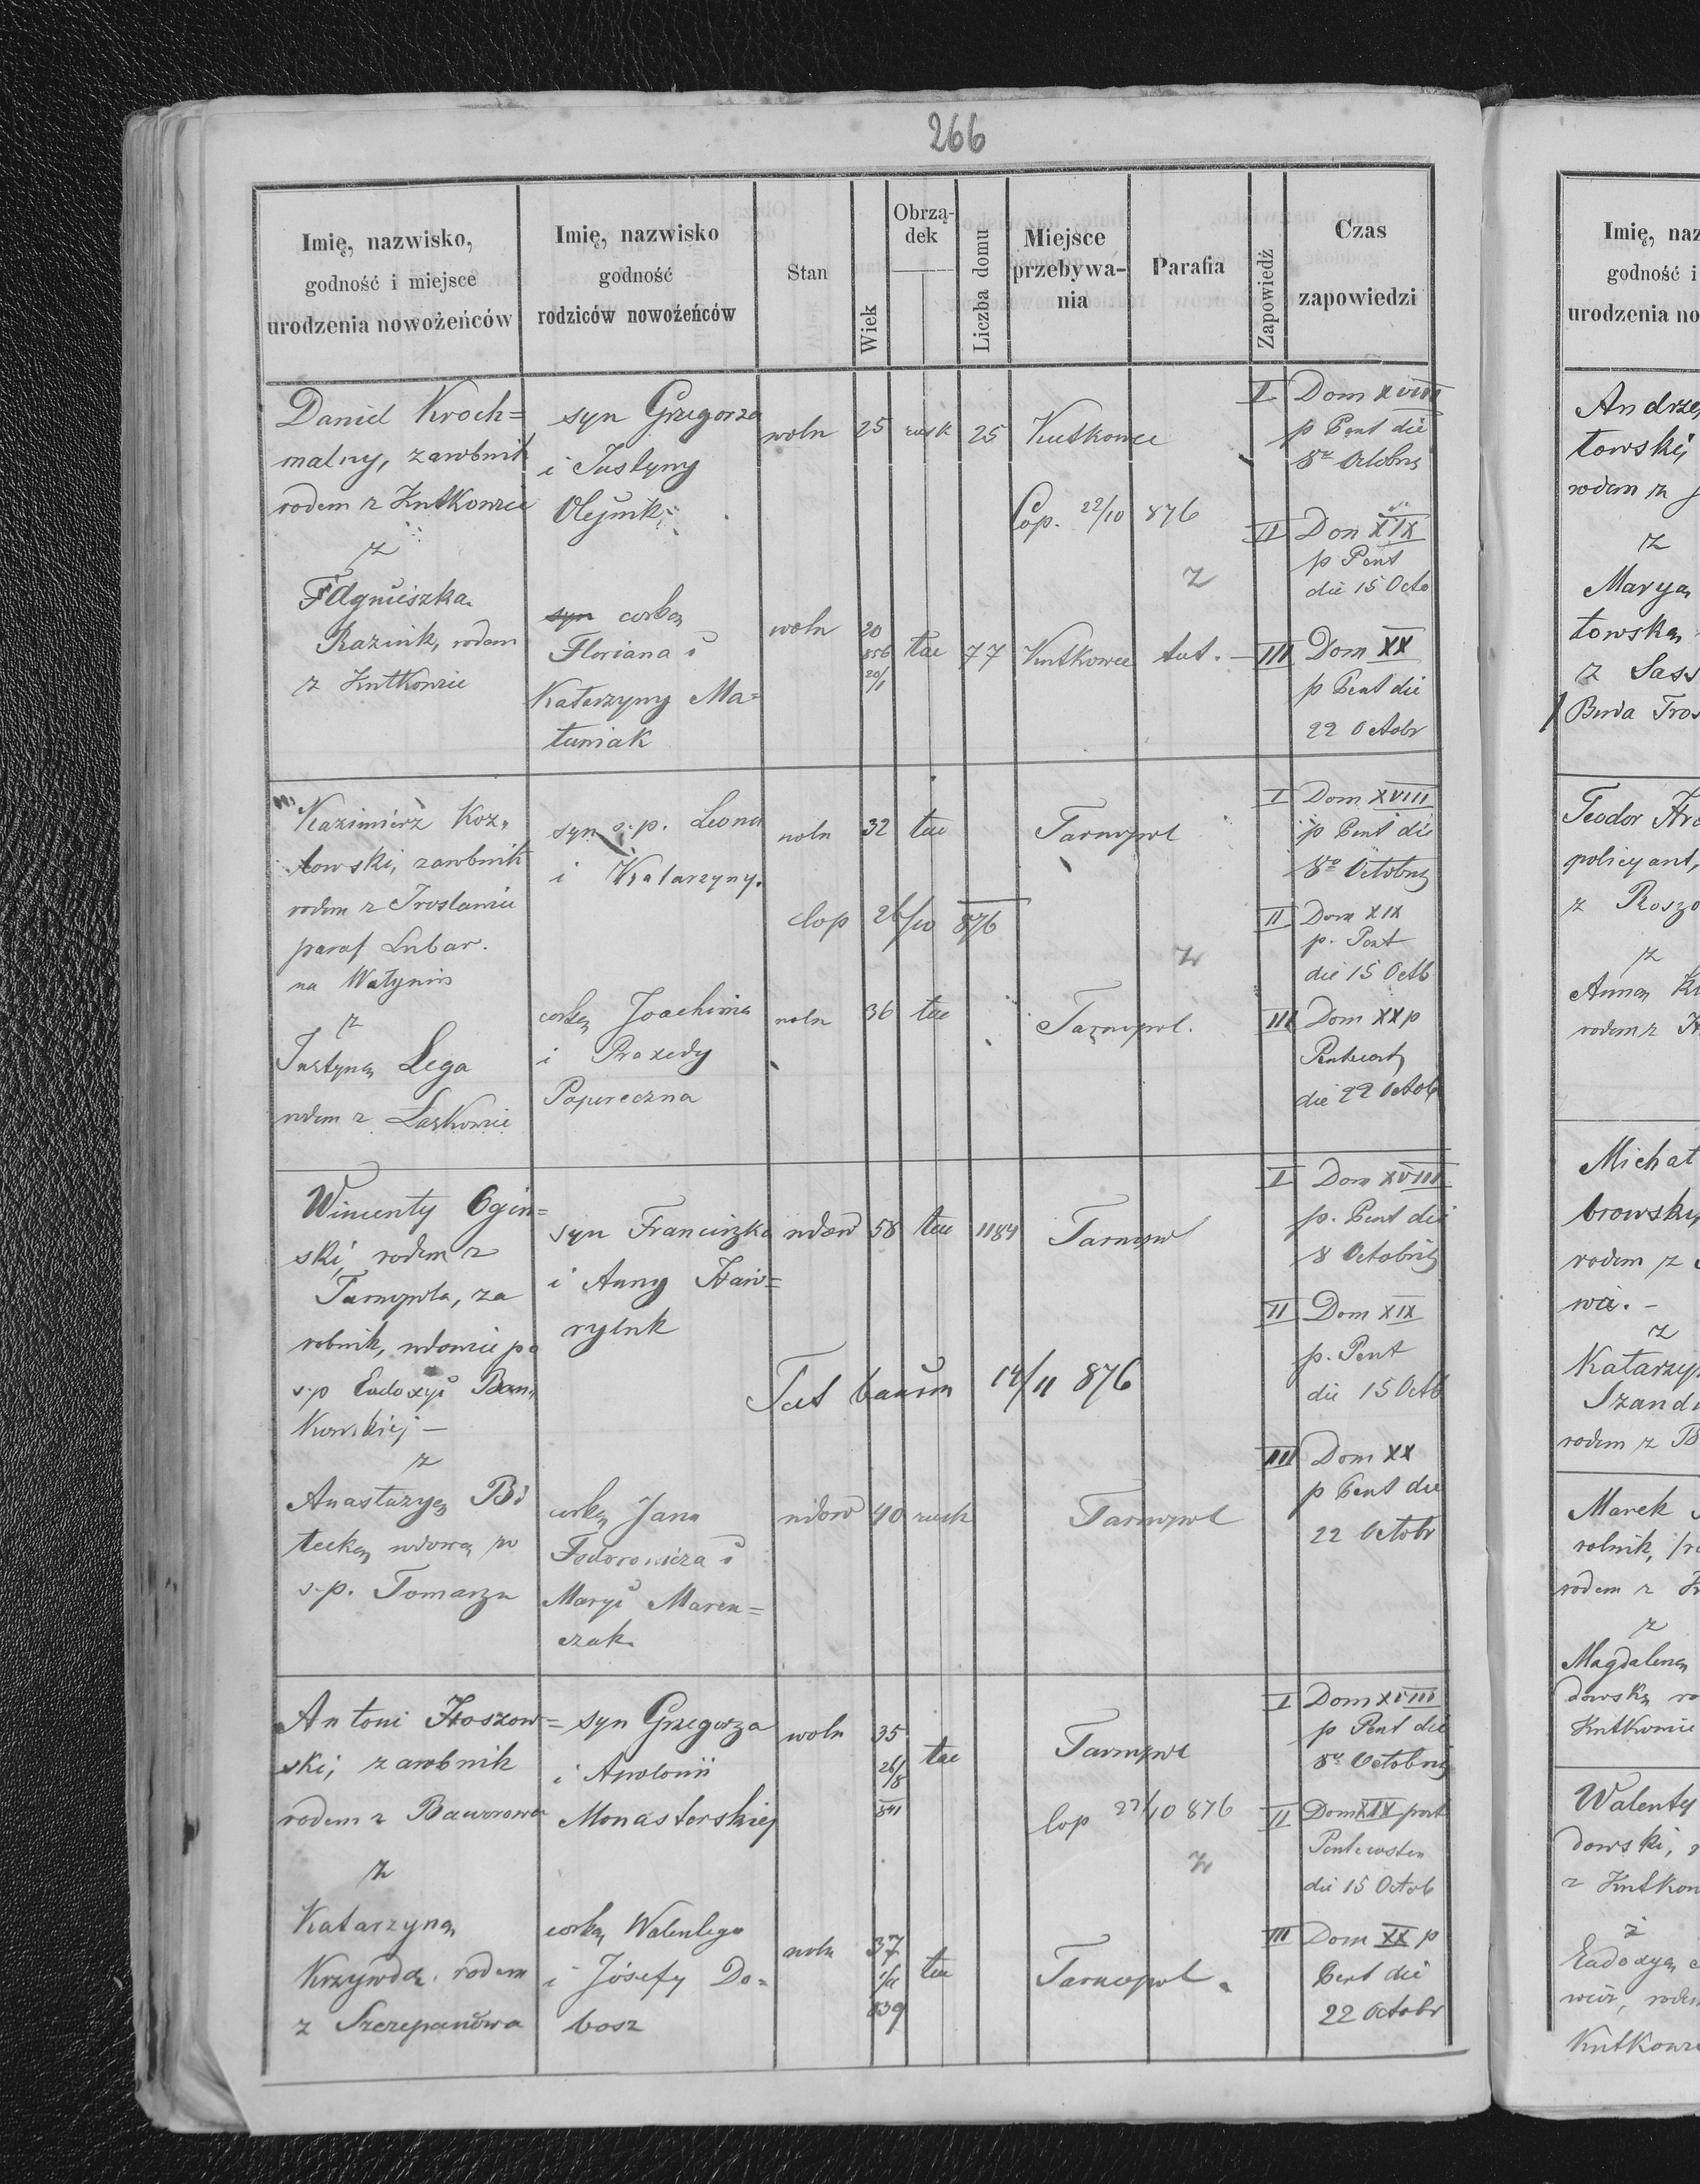 266
Imię, nazwisko,
godność i miejsce
urodzenia nowożeńców
Imię, nazwisko
godność
rodziców nowożeńców
Stan
Wiek
Obrzą-
dek
Liczba domu
Miejsce
przebywa-
nia
Parafia
Zapowiedź
Czas
zapowiedzi
Daniel Kroch=
malny, zarobnik
rodem z Kutkowiec
z
Agnieszką
Kazimik, rodem
z Kutkowic
syn Grzegorza
i Justyny
Olejnik
syn corką
Floriana i
Katarzyny Ma=
tuniak
woln 25 rusk 25 Kutkowce
Cop. 22/10 876
z
woln 20
856
20/1
tac 77 Kutkowce tut.
I Dom XVIII
p Pent die
8va Octobris
II Dom XIX
p Pent
die 15 Octo
III Dom XX
p Pent die
22 Octobr
Kazimierz Koz=
łowski, zarobnik
rodem z
paraf Lubar.
na Wołyniu
z
Justyną Lega
rodem z Laskowic
syn s.p. Leona
i Katarzyny.
corką Joachima
i Praxedy
Papereczna
woln 32 tac Tarnopol
Cop 26/10 876
z
woln 36 tac Tarnopol.
I Dom XVIII
p Pent die
8va Octobris
II Dom XIX
p. Pent
die 15 Octb
III Dom XX p
Pentecost
die 22 Octob
Wincenty Ogiń=
ski, rodem z
Tarnopola, za
robnik, wdowiec po
s.p Eudoxyi Bań
kowskiej —
z
Anastazyą Bi
tecką wdową po
s.p. Tomaszu
syn Franciszka
i Anny Haw=
ryluk
corką Jana
Fedorowicza i
Maryi Maren=
czak
wdow 58 tac 1184 Tarnopol
Tut 14/11 876
wdow 40 rusk Tarnopol
I Dom XVIII
p. Pent die
8 Octobris
II Dom XIX
p. Pent
die 15 Octb
III Dom XX
p Pent die
22 Octobr
Antoni Hoszow=
ski, zarobnik
rodem z Baworowa
z
Katarzyną
Krzywdą. rodem
z Szczepanowa
syn Grzegorza
i Apolonii
Monasterskiej
corką Walentego
i Józefy Do=
bosz
woln 35
26/8
841
tac Tarnopol
Cop 22/10 876
z
woln 37
839
tac Tarnopol.
I Dom XVIII
p Pent die
8va Octobris
II Dom XIX post
Pentecosten
die 15 Octob
III Dom XX p
Pent die
22 Octobr
Imię, naz
godność i
urodzenia no
Andrze
towski,
rodem z
z
Maryą
towską
z Sass
Teodor
policyant,
z Roszo
z
Anną
rodem z
Michał
browski,
rodem z
z
Katarzy
Szand
rodem z B
Marek
rolnik,
rodem z
z
Magdaleną
dowską
Kutkowic
Walenty
dowski,
z Kutkow
z
Eudoxyą
wicz, rodem
Kutkowi